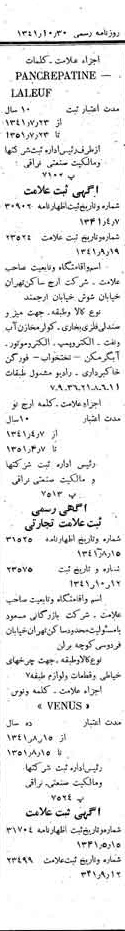 روزنامه رسمی ۱۳۴۱٫۱۰٫۳۰
اجزاء علامت ـ کلمات
PANCREPATINE —
LALEUF
مدت اعتبار ثبت ۱۰ سال
از ۱۳۴۱٫۷٫۲۳
تا ۱۳۵۱٫۷٫۲۳
ازطرف رئیس اداره ثبت شرکتها
ومالکیت صنعتی نراقی
۷۱۰۲ پ
آگهی ثبت علامت
شماره وتاریخ ثبت اظهارنامه ۳۰۹۰۲
۱۳۴۱٫۴٫۷
شماره وتاریخ ثبت علامت ۲۳۵۲۴
۱۳۴۱٫۹٫۱۹
اسم واقامتگاه وتابعیت صاحب
علامت ـ شرکت ارج ساکن تهران
خیابان شوش خیابان ارجمند
نوع کالا وطبقه ـ جهت میز و
صندلی فلزی بخاری ـ کولر مخازن آب
ونفت ـ الکتروپمپ ـ الکتروموتور ـ
آبگرمکن ـ تختخواب ـ فورگن
خاکبرداری ـ رادیو مشمول طبقات
۷ـ۹ـ۳۶ـ۲۱ـ۸ـ۶ـ۱۱
اجزاء علامت ـ کلمه ارج نو
مدت اعتبار ۱۰ سال
از ۱۳۴۱٫۴٫۷
تا ۱۳۵۱٫۴٫۷
رئیس اداره ثبت شرکتها
و مالکیت صنعتی نراقی
۷۵۱۳ پ
آگهی رسمی
ثبت علامت تجارتی
شماره وتاریخ اظهارنامه ۳۱۵۲۵
۱۳۴۱٫۸٫۱۵
شماره و تاریخ ثبت ۲۳۵۷۵
۱۳۴۱٫۱۰٫۱۲
اسم واقامتگاه وتابعیت صاحب
علامت ـ شرکت بازرگانی مسعود
بامسئولیت محدود ساکن تهران خیابان
فردوسی کوچه برلن
نوع کالا وطبقه ـ جهت چرخهای
خیاطی وقطعات ولوازم طبقه ۷
اجزاء علامت ـ کلمه ونوس
« VENUS »
مدت اعتبار ده سال
از ۱۳۴۱٫۸٫۱۵
تا ۱۳۵۱٫۸٫۱۵
رئیس اداره ثبت شرکتها ـ
ومالکیت صنعتی ـ نراقی
۷۵۲۴ پ
آگهی ثبت علامت
شماره وتاریخ ثبت اظهارنامه ۳۱۷۰۴
شماره وتاریخ ثبت علامت ۲۳۴۹۹